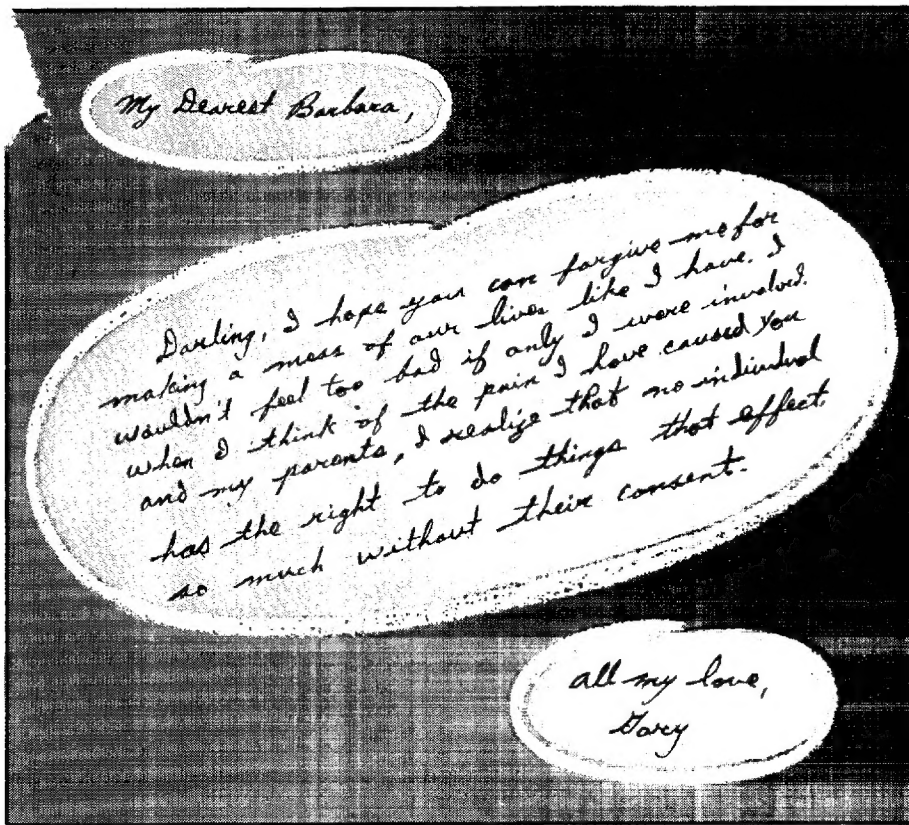 My Dearest Barbara,
Darling, I hope you can forgive me for
making a mess of our lives like I have. I
wouldn't feel too bad if only I were involved.
when I think of the pain I have caused you
and my parents, I realize that no individual
has the right to do things that effect
so much without their consent.
all my love,
Gary